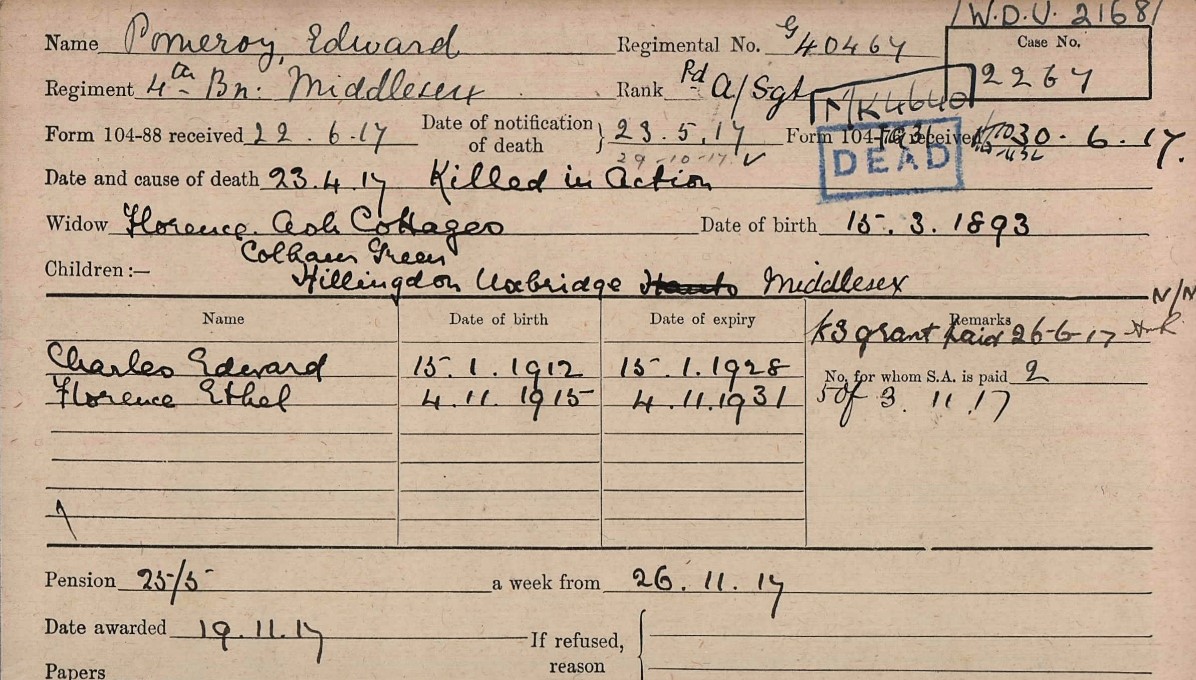 W.D.U. 2168/
Name Pomeroy, Edward Regimental No. G/40467 Case No. 2267
Regiment 4th Bn. Middlesex Rank Pd A/Sgt 1/K4640
Form 104-88 received 22.6.17 Date of notification of death } 23.5.17 Form 104-76 received 30.6.17.
29-10-17. ✓
DEAD
Date and cause of death 23.4.17 Killed in Action
Widow Florence. Ash Cottages Date of birth 15.3.1893
Colham Green
Children:— Hillingdon Uxbridge Hants Middlesex
N/N
Name Date of birth Date of expiry Remarks
£3 grant paid 26-6-17
Charles Edward 15.1.1912 15.1.1928 No. for whom S.A. is paid 2
Florence Ethel 4.11.1915 4.11.1931 5of 3.11.17
Pension 25/5 a week from 26.11.17
Date awarded 19.11.17 If refused, reason {
Papers